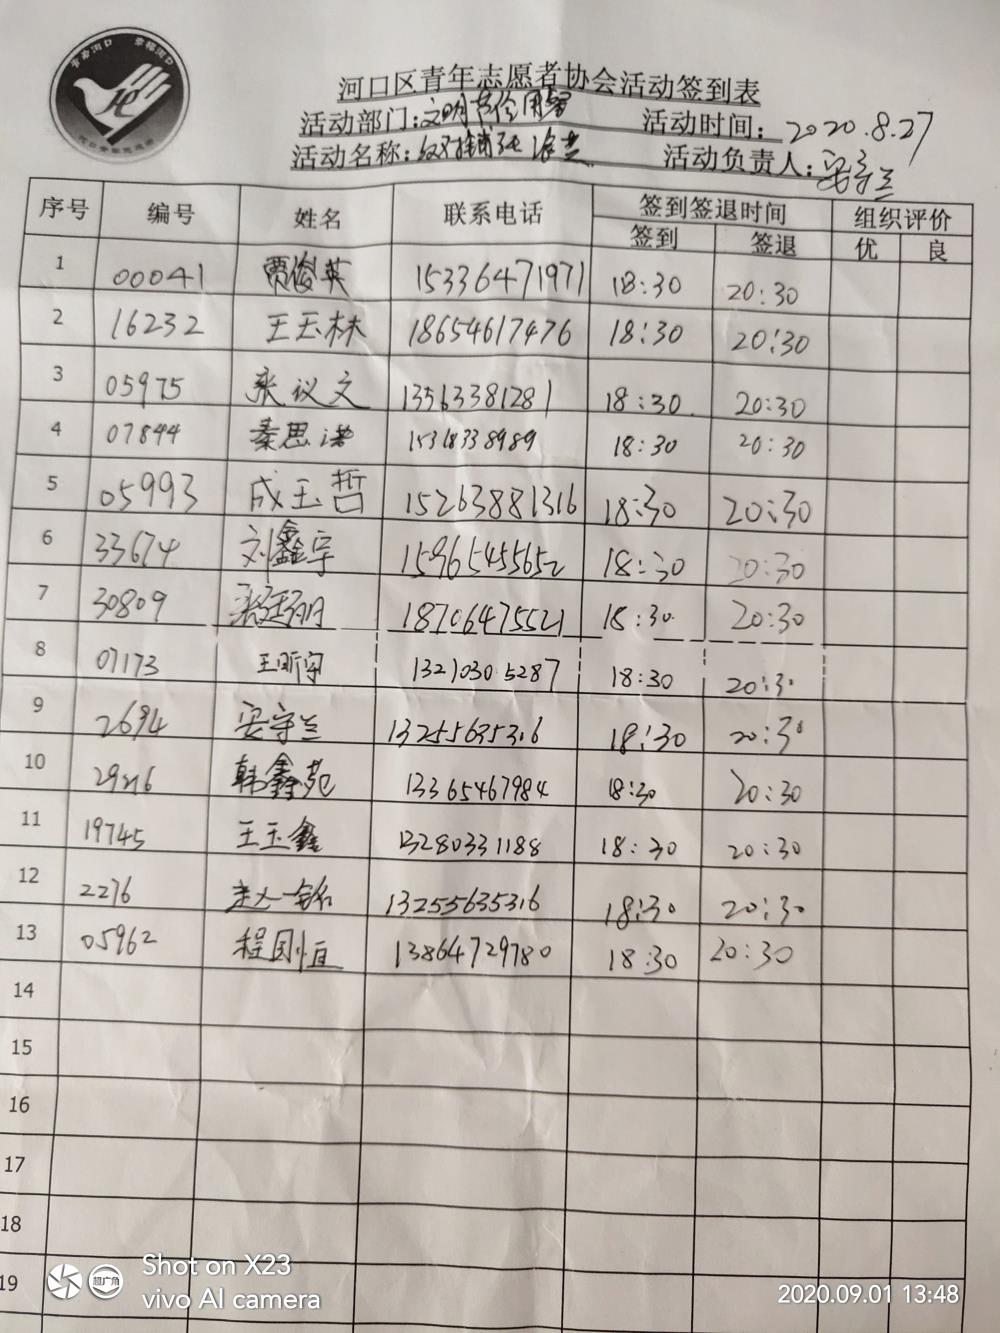 河口区青年志愿者协会活动签到表
活动部门: 文明 活动时间: 2020.8.27
活动名称: 活动负责人: 安守兰
序号 编号 姓名 联系电话 签到签退时间 组织评价
签到 签退 优 良
1 00041 贾俊英 15336471971 18:30 20:30
2 16232 王玉林 18654617476 18:30 20:30
3 05975 张议文 13563381281 18:30 20:30
4 07844 秦思 15318338989 18:30 20:30
5 05993 成玉哲 15263881316 18:30 20:30
6 33674 刘鑫宇 15965455652 18:30 20:30
7 30809 18706475521 18:30 20:30
8 07173 王昕宇 13210305287 18:30 20:30
9 2694 安守兰 13255635316 18:30 20:30
10 韩鑫苑 13365467984 18:30 20:30
11 19745 王玉鑫 13280331188 18:30 20:30
12 2276 赵一铭 13255635316 18:30 20:30
13 05962 程刚恒 13864729780 18:30 20:30
14
15
16
17
18
19
Shot on X23
vivo AI camera
超广角
2020.09.01 13:48